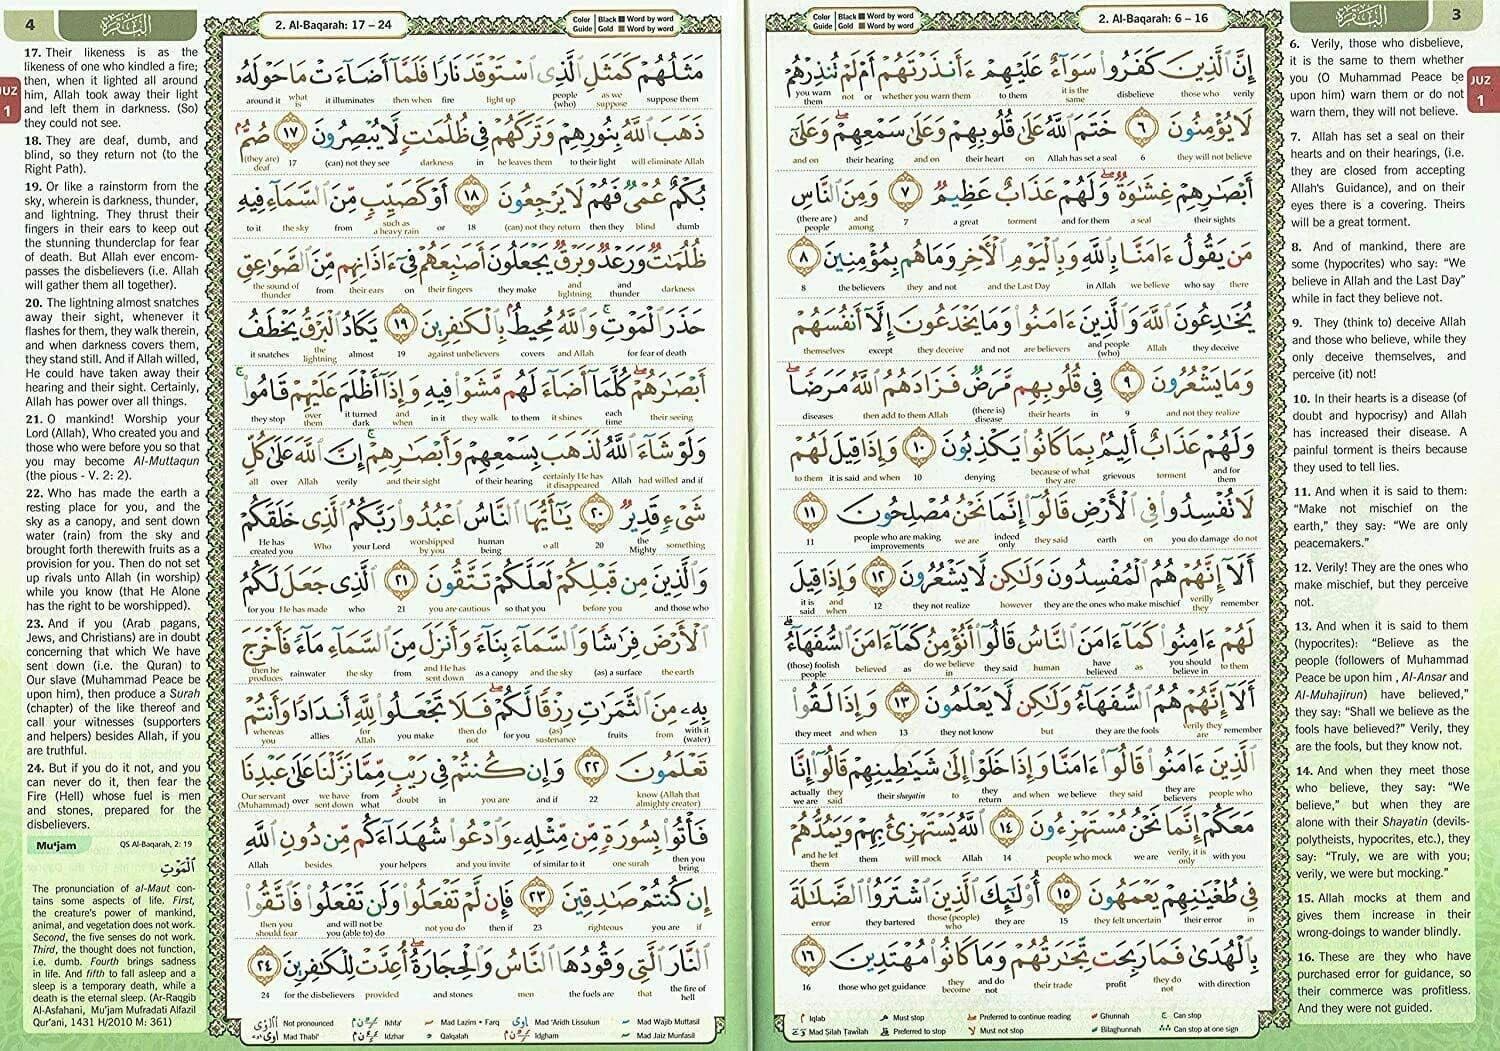 Color Guide | Black Word by word
Gold Word by word
2. Al-Baqarah: 6 – 16
البقرة
3
JUZ
1
إِنَّ ٱلَّذِينَ كَفَرُوا۟ سَوَآءٌ عَلَيْهِمْ ءَأَنذَرْتَهُمْ أَمْ لَمْ تُنذِرْهُمْ
you warn them not or whether you warn them to them it is the same disbelieve those who verily
لَا يُؤْمِنُونَ ٦ خَتَمَ ٱللَّهُ عَلَىٰ قُلُوبِهِمْ وَعَلَىٰ سَمْعِهِمْ ۖ وَعَلَىٰٓ
and on their hearing and on their heart on Allah has set a seal 6 they will not believe
أَبْصَـٰرِهِمْ غِشَـٰوَةٌ ۖ وَلَهُمْ عَذَابٌ عَظِيمٌ ٧ وَمِنَ ٱلنَّاسِ
(there are) people and among 7 a great torment and for them a seal their sights
مَن يَقُولُ ءَامَنَّا بِٱللَّهِ وَبِٱلْيَوْمِ ٱلْـَٔاخِرِ وَمَا هُم بِمُؤْمِنِينَ ٨
8 the believers they and not and the Last Day in Allah we believe who say there
يُخَـٰدِعُونَ ٱللَّهَ وَٱلَّذِينَ ءَامَنُوا۟ وَمَا يَخْدَعُونَ إِلَّآ أَنفُسَهُمْ
themselves except they deceive and not are believers and people (who) Allah they deceive
وَمَا يَشْعُرُونَ ٩ فِى قُلُوبِهِم مَّرَضٌ فَزَادَهُمُ ٱللَّهُ مَرَضًا ۖ
diseases then add to them Allah (there is) disease their hearts in 9 and not they realize
وَلَهُمْ عَذَابٌ أَلِيمٌۢ بِمَا كَانُوا۟ يَكْذِبُونَ ١٠ وَإِذَا قِيلَ لَهُمْ
to them it is said and when 10 denying because of what they are grievous torment and for them
لَا تُفْسِدُوا۟ فِى ٱلْأَرْضِ قَالُوٓا۟ إِنَّمَا نَحْنُ مُصْلِحُونَ ١١
11 people who are making improvements we are indeed only they said earth on you do damage do not
أَلَآ إِنَّهُمْ هُمُ ٱلْمُفْسِدُونَ وَلَـٰكِن لَّا يَشْعُرُونَ ١٢ وَإِذَا قِيلَ
it is said and when 12 they not realize however they are the ones who make mischief verily they remember
لَهُمْ ءَامِنُوا۟ كَمَآ ءَامَنَ ٱلنَّاسُ قَالُوٓا۟ أَنُؤْمِنُ كَمَآ ءَامَنَ ٱلسُّفَهَآءُ ۗ
(those) foolish people believed as do we believe they said human have believed as you should believe in to them
أَلَآ إِنَّهُمْ هُمُ ٱلسُّفَهَآءُ وَلَـٰكِن لَّا يَعْلَمُونَ ١٣ وَإِذَا لَقُوا۟
they meet and when 13 they not know but they are the fools verily they are remember
ٱلَّذِينَ ءَامَنُوا۟ قَالُوٓا۟ ءَامَنَّا وَإِذَا خَلَوْا۟ إِلَىٰ شَيَـٰطِينِهِمْ قَالُوٓا۟ إِنَّا
actually we are they said their shayatin to they return and when we believe they said they are believers people who
مَعَكُمْ إِنَّمَا نَحْنُ مُسْتَهْزِءُونَ ١٤ ٱللَّهُ يَسْتَهْزِئُ بِهِمْ وَيَمُدُّهُمْ
and he let them them will mock Allah 14 people who mock we are verily, it is only with you
فِى طُغْيَـٰنِهِمْ يَعْمَهُونَ ١٥ أُو۟لَـٰٓئِكَ ٱلَّذِينَ ٱشْتَرَوُا۟ ٱلضَّلَـٰلَةَ
error they bartered those (people) who they are 15 they felt uncertain their error in
بِٱلْهُدَىٰ فَمَا رَبِحَت تِّجَـٰرَتُهُمْ وَمَا كَانُوا۟ مُهْتَدِينَ ١٦
16 those who get guidance they become and do not their trade profit they do not with direction
6. Verily, those who disbelieve,
it is the same to them whether
you (O Muhammad Peace be
upon him) warn them or do not
warn them, they will not believe.
7. Allah has set a seal on their
hearts and on their hearings, (i.e.
they are closed from accepting
Allah's Guidance), and on their
eyes there is a covering. Theirs
will be a great torment.
8. And of mankind, there are
some (hypocrites) who say: “We
believe in Allah and the Last Day”
while in fact they believe not.
9. They (think to) deceive Allah
and those who believe, while they
only deceive themselves, and
perceive (it) not!
10. In their hearts is a disease (of
doubt and hypocrisy) and Allah
has increased their disease. A
painful torment is theirs because
they used to tell lies.
11. And when it is said to them:
“Make not mischief on the
earth,” they say: “We are only
peacemakers.”
12. Verily! They are the ones who
make mischief, but they perceive
not.
13. And when it is said to them
(hypocrites): “Believe as the
people (followers of Muhammad
Peace be upon him , Al-Ansar and
Al-Muhajirun) have believed,”
they say: “Shall we believe as the
fools have believed?” Verily, they
are the fools, but they know not.
14. And when they meet those
who believe, they say: “We
believe,” but when they are
alone with their Shayatin (devils-
polytheists, hypocrites, etc.), they
say: “Truly, we are with you;
verily, we were but mocking.”
15. Allah mocks at them and
gives them increase in their
wrong-doings to wander blindly.
16. These are they who have
purchased error for guidance, so
their commerce was profitless.
And they were not guided.
Iqlab Must stop Preferred to continue reading Ghunnah Can stop
Mad Silah Tawilah Preferred to stop Must not stop Bilaghunnah Can stop at one sign
4
البقرة
2. Al-Baqarah: 17 – 24
Color Guide | Black Word by word
Gold Word by word
JUZ
1
مَثَلُهُمْ كَمَثَلِ ٱلَّذِى ٱسْتَوْقَدَ نَارًا فَلَمَّآ أَضَآءَتْ مَا حَوْلَهُۥ
around it what is it illuminates then when fire light up people (who) as we suppose suppose them
ذَهَبَ ٱللَّهُ بِنُورِهِمْ وَتَرَكَهُمْ فِى ظُلُمَـٰتٍ لَّا يُبْصِرُونَ ١٧ صُمٌّۢ
(they are) deaf 17 (can) not they see darkness in he leaves them to their light will eliminate Allah
بُكْمٌ عُمْىٌ فَهُمْ لَا يَرْجِعُونَ ١٨ أَوْ كَصَيِّبٍ مِّنَ ٱلسَّمَآءِ فِيهِ
to it the sky from such as a heavy rain or 18 (can) not they return then they blind dumb
ظُلُمَـٰتٌ وَرَعْدٌ وَبَرْقٌ يَجْعَلُونَ أَصَـٰبِعَهُمْ فِىٓ ءَاذَانِهِم مِّنَ ٱلصَّوَٰعِقِ
the sound of thunder from their ears on their fingers they make and lightning and thunder darkness
حَذَرَ ٱلْمَوْتِ ۚ وَٱللَّهُ مُحِيطٌۢ بِٱلْكَـٰفِرِينَ ١٩ يَكَادُ ٱلْبَرْقُ يَخْطَفُ
it snatches the lightning almost 19 against unbelievers covers and Allah for fear of death
أَبْصَـٰرَهُمْ ۖ كُلَّمَآ أَضَآءَ لَهُم مَّشَوْا۟ فِيهِ وَإِذَآ أَظْلَمَ عَلَيْهِمْ قَامُوا۟ ۚ
they stop over them it turned dark and when in it they walk to them it shines each time their seeing
وَلَوْ شَآءَ ٱللَّهُ لَذَهَبَ بِسَمْعِهِمْ وَأَبْصَـٰرِهِمْ ۚ إِنَّ ٱللَّهَ عَلَىٰ كُلِّ
all over Allah verily and their sight of their hearing certainly He has it disappeared Allah had willed and if
شَىْءٍ قَدِيرٌ ٢٠ يَـٰٓأَيُّهَا ٱلنَّاسُ ٱعْبُدُوا۟ رَبَّكُمُ ٱلَّذِى خَلَقَكُمْ
He has created you Who your Lord worshipped by you human being o all 20 the Mighty something
وَٱلَّذِينَ مِن قَبْلِكُمْ لَعَلَّكُمْ تَتَّقُونَ ٢١ ٱلَّذِى جَعَلَ لَكُمُ
for you He has made who 21 you are cautious so that you before you and those who
ٱلْأَرْضَ فِرَٰشًا وَٱلسَّمَآءَ بِنَآءً وَأَنزَلَ مِنَ ٱلسَّمَآءِ مَآءً فَأَخْرَجَ
then he produces rainwater the sky from and He has sent down as a canopy and the sky (as) a surface the earth
بِهِۦ مِنَ ٱلثَّمَرَٰتِ رِزْقًا لَّكُمْ ۖ فَلَا تَجْعَلُوا۟ لِلَّهِ أَندَادًا وَأَنتُمْ
whereas you allies for Allah you make then do not for you (as) sustenance fruits from with it (water)
تَعْلَمُونَ ٢٢ وَإِن كُنتُمْ فِى رَيْبٍ مِّمَّا نَزَّلْنَا عَلَىٰ عَبْدِنَا
Our servant (Muhammad) over we have sent down from what doubt in you are and if 22 know (Allah that almighty creator)
فَأْتُوا۟ بِسُورَةٍ مِّن مِّثْلِهِۦ وَٱدْعُوا۟ شُهَدَآءَكُم مِّن دُونِ ٱللَّهِ
Allah besides your helpers and you invite of similar to it one surah then you bring
إِن كُنتُمْ صَـٰدِقِينَ ٢٣ فَإِن لَّمْ تَفْعَلُوا۟ وَلَن تَفْعَلُوا۟ فَٱتَّقُوا۟
then you should fear and will not be you (able to) do not you do then if 23 righteous you are if
ٱلنَّارَ ٱلَّتِى وَقُودُهَا ٱلنَّاسُ وَٱلْحِجَارَةُ ۖ أُعِدَّتْ لِلْكَـٰفِرِينَ ٢٤
24 for the disbelievers provided and stones men the fuels are that the fire of hell
17. Their likeness is as the
likeness of one who kindled a fire;
then, when it lighted all around
him, Allah took away their light
and left them in darkness. (So)
they could not see.
18. They are deaf, dumb, and
blind, so they return not (to the
Right Path).
19. Or like a rainstorm from the
sky, wherein is darkness, thunder,
and lightning. They thrust their
fingers in their ears to keep out
the stunning thunderclap for fear
of death. But Allah ever encom-
passes the disbelievers (i.e. Allah
will gather them all together).
20. The lightning almost snatches
away their sight, whenever it
flashes for them, they walk therein,
and when darkness covers them,
they stand still. And if Allah willed,
He could have taken away their
hearing and their sight. Certainly,
Allah has power over all things.
21. O mankind! Worship your
Lord (Allah), Who created you and
those who were before you so that
you may become Al-Muttaqun
(the pious - V. 2: 2).
22. Who has made the earth a
resting place for you, and the
sky as a canopy, and sent down
water (rain) from the sky and
brought forth therewith fruits as a
provision for you. Then do not set
up rivals unto Allah (in worship)
while you know (that He Alone
has the right to be worshipped).
23. And if you (Arab pagans,
Jews, and Christians) are in doubt
concerning that which We have
sent down (i.e. the Quran) to
Our slave (Muhammad Peace be
upon him), then produce a Surah
(chapter) of the like thereof and
call your witnesses (supporters
and helpers) besides Allah, if you
are truthful.
24. But if you do it not, and you
can never do it, then fear the
Fire (Hell) whose fuel is men
and stones, prepared for the
disbelievers.
Mu'jam QS Al-Baqarah, 2: 19
ٱلْمَوْتِ
The pronunciation of al-Maut con-
tains some aspects of life. First,
the creature's power of mankind,
animal, and vegetation does not work.
Second, the five senses do not work.
Third, the thought does not function,
i.e. dumb. Fourth brings sadness
in life. And fifth to fall asleep and a
sleep is a temporary death, while a
death is the eternal sleep. (Ar-Raqgib
Al-Asfahani, Mu'jam Mufradati Alfazil
Qur'ani, 1431 H/2010 M: 361)
Not pronounced Ikhfa' Mad Lazim • Farq Mad 'Aridh Lissukun Mad Wajib Muttasil
Mad Thabi' Idzhar Qalqalah Idgham Mad Jaiz Munfasil